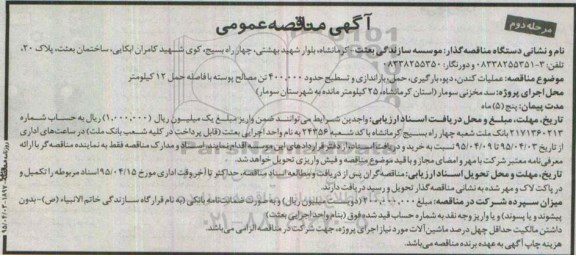 مرحله دوم
آگهی مناقصه عمومی
نام و نشانی دستگاه مناقصه گذار: موسسه سازندگی بعثت - کرمانشاه، بلوار شهید بهشتی، چهارراه بسیج، کوی شهید کامران ابکایی، ساختمان بعثت، پلاک ۲۰،
تلفن: ۳-۰۸۳۳۸۲۵۵۳۵۱ و دورنگار: ۰۸۳۳۸۲۵۵۳۵۰
موضوع مناقصه: عملیات کندن، دپو، بارگیری، حمل، باراندازی و تسطیح حدود ۴۰۰,۰۰۰ تن مصالح پوسته با فاصله حمل ۱۲ کیلومتر
محل اجرای پروژه: سد مخزنی سومار (استان کرمانشاه، ۲۵ کیلومتر مانده به شهرستان سومار)
مدت پیمان: پنج (۵) ماه
تاریخ، مهلت، مبلغ و محل دریافت اسناد ارزیابی: واجدین شرایط می توانند ضمن واریز مبلغ یک میلیون ریال (۱,۰۰۰,۰۰۰) ریال به حساب شماره
۲۱۷۱۳۶۰۲۱۳ بانک ملت شعبه چهار راه بسیج کرمانشاه با کد شعبه ۲۴۳۵۶ به نام واحد اجرایی بعثت (قابل پرداخت در کلیه شعب بانک ملت) در ساعت های اداری
از تاریخ ۹۵/۰۴/۰۳ تا ۹۵/۰۴/۰۹ نسبت به خرید و دریافت اسناد از دفتر قراردادهای این موسسه اقدام نمایند. اسناد و مدارک مناقصه فقط به نماینده مناقصه گر با ارائه
معرفی نامه معتبر شرکت با مهر و امضای مجاز و با قید موضوع مناقصه و فیش واریزی تحویل خواهد شد.
تاریخ، مهلت و محل تحویل اسناد ارزیابی: مناقصه گران پس از دریافت و مطالعه اسناد مناقصه، حداکثر تا آخر وقت اداری مورخ ۹۵/۰۴/۱۵ اسناد مربوطه را تکمیل و
در پاکت لاک و مهر شده به نشانی مناقصه گذار تحویل و رسید دریافت دارند.
میزان سپرده شرکت در مناقصه: مبلغ ۲۰۰,۰۰۰,۰۰۰ (دویست میلیون ریال) و به صورت ضمانت نامه بانکی (به نام قرارگاه سازندگی خاتم الانبیاء (ص)-بدون
پیشوند و یا پسوند) و یا واریز وجه نقد به شماره حساب قید شده فوق (بنام واحد اجرایی بعثت)
داشتن مالکیت حداقل چهل درصد ماشین آلات مورد نیاز اجرای پروژه، جهت شرکت در مناقصه الزامی می باشد.
هزینه چاپ آگهی به عهده برنده مناقصه می باشد.